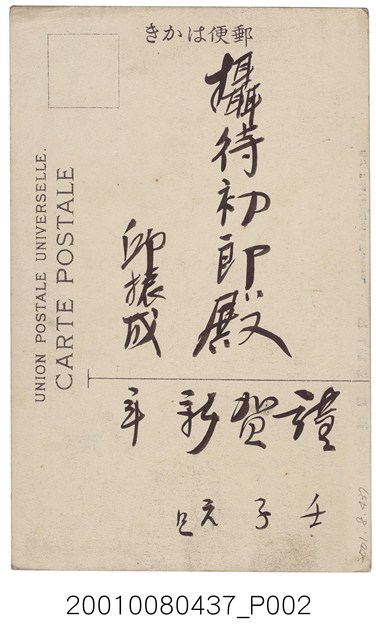 きかは便郵
UNION POSTALE UNIVERSELLE.
CARTE POSTALE
攝待初郎殿
邱振成
謹賀新年
壬子元旦
2001.8.437
20010080437_P002